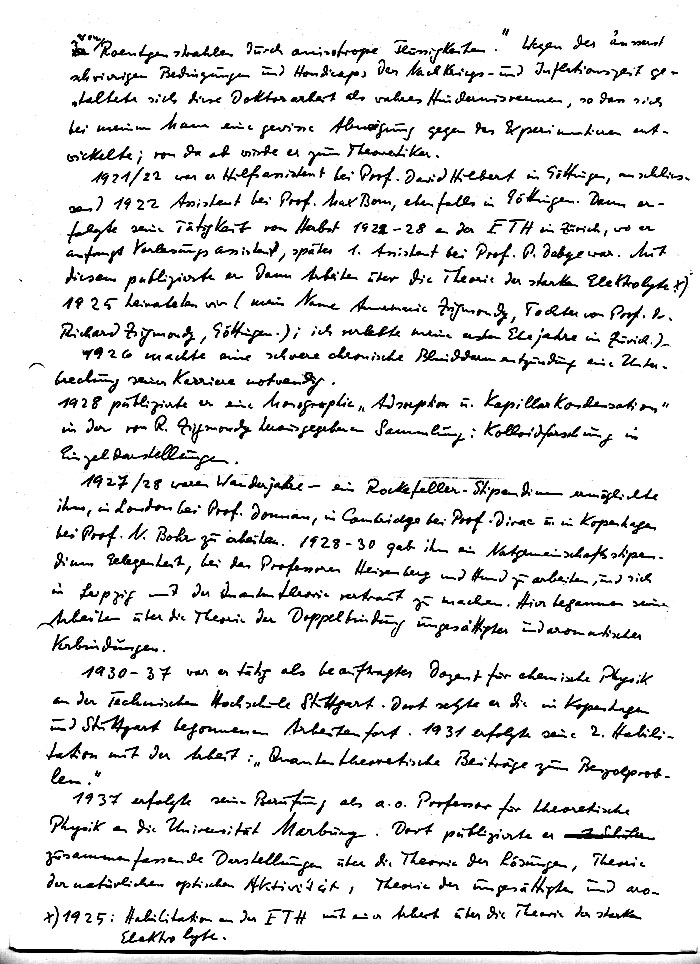 von
Roentgenstrahlen durch anisotrope Flüssigkeiten." Wegen der äusserst
schwierigen Bedingungen und Handicaps der Nachkriegs- und Inflationszeit ge-
staltete sich diese Doktorarbeit als wahres Hindernisrennen, so dass sich
bei meinem Mann eine gewisse Abneigung gegen das Experimentieren ent-
wickelte; von da ab wurde er zum Theoretiker.
1921/22 war er Hilfsassistent bei Prof. David Hilbert in Göttingen, anschlies-
send 1922 Assistent bei Prof. Max Born, ebenfalls in Göttingen. Dann er-
folgte seine Tätigkeit von Herbst 1922-28 an der ETH in Zürich, wo er
anfangs Vorlesungsassistent, später 1. Assistent bei Prof. P. Debye war. Mit
diesem publizierte er dann Arbeiten über die Theorie der starken Elektrolyte x)
1925 heirateten wir (mein Name Annemarie Zsigmondy, Tochter von Prof. Dr.
Richard Zsigmondy, Göttingen.); ich verlebte meine ersten Ehejahre in Zürich.)
1926 machte eine schwere chronische Blinddarmentzündung eine Unter-
brechung seiner Karriere notwendig.
1928 publizierte er eine Monographie „Adsorption u. Kapillarkondensation"
in der von R. Zsigmondy herausgegebenen Sammlung: Kolloidforschung in
Einzeldarstellungen.
1927/28 waren Wanderjahre – ein Rockefeller-Stipendium ermöglichte
ihm, in London bei Prof. Donnan, in Cambridge bei Prof. Dirac u. in Kopenhagen
bei Prof. N. Bohr zu arbeiten. 1928-30 gab ihm ein Notgemeinschaftsstipen-
dium Gelegenheit, bei den Professoren Heisenberg und Hund zu arbeiten, und sich
in Leipzig mit der Quantentheorie vertraut zu machen. Hier begannen seine
Arbeiten über die Theorie der Doppelbindung ungesättigter und aromatischer
Verbindungen.
1930-37 war er tätig als beauftragter Dozent für chemische Physik
an der Technischen Hochschule Stuttgart. Dort setzte er die in Kopenhagen
und Stuttgart begonnenen Arbeiten fort. 1931 erfolgte seine 2. Habili-
tation mit der Arbeit: „Quantentheoretische Beiträge zum Benzolprob-
lem."
1937 erfolgte seine Berufung als a.o. Professor für theoretische
Physik an die Universität Marburg. Dort publizierte er
zusammenfassende Darstellungen über die Theorie der Lösungen, Theorie
der natürlichen optischen Aktivität, Theorie der ungesättigten und aro-
x) 1925: Habilitation an der ETH mit einer Arbeit über die Theorie der starken
Elektrolyte.